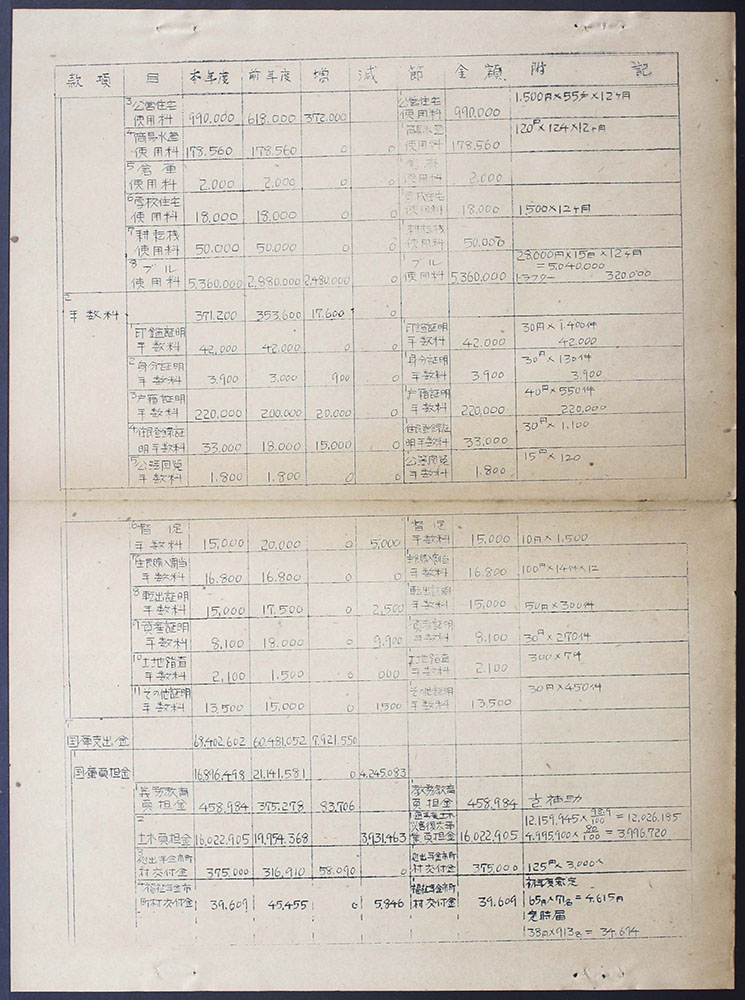 款項 目 本年度 前年度 増 減 節 金額 附記
3 公営住宅 1 公営住宅 1,500円×55戸×12ヶ月
使用料 990.000 618.000 372.000 使用料 990.000
4 簡易水道 1 簡易水道 120円×124×12ヶ月
使用料 178.560 178.560 0 0 使用料 178.560
5 倉庫
使用料 2.000 2.000 0 0 使用料 2.000
6 学校住宅 1 学校住宅
使用料 18.000 18.000 0 0 使用料 18.000 1,500×12ヶ月
7 耕耘機 1 耕耘機
使用料 50.000 50.000 0 0 使用料 50.000
8 ブル 1 ブル 28.000円×15日×12ヶ月
使用料 5,360.000 2,880.000 2,480.000 0 使用料 5,360.000 =5,040.000
トラクター 320.000
2
手数料 371.200 353.600 17.600 0
1 印鑑証明 1 印鑑証明 30円×1.400件
手数料 42.000 42.000 0 0 手数料 42.000 42.000
2 身分証明 1 身分証明 30円×130件
手数料 3.900 3.000 900 0 手数料 3.900 3.900
3 戸籍証明 1 戸籍証明 40円×550件
手数料 220.000 200.000 20.000 0 手数料 220.000 220.000
4 住民登録証 1 住民登録証 30円×1.100
明手数料 33.000 18.000 15.000 0 明手数料 33.000
5 公簿閲覧 1 公簿閲覧 15円×120
手数料 1.800 1.800 0 0 手数料 1.800
6 督促 1 督促
手数料 15.000 20.000 0 5.000 手数料 15.000 10円×1.500
7
手数料 16.800 16.800 0 0 手数料 16.800 100円×14件×12
8 転出証明 1 転出証明
手数料 15.000 17.500 0 2.500 手数料 15.000 50円×300件
9 資産証明 1 資産証明
手数料 8.100 18.000 0 9.900 手数料 8.100 30円×270件
10 土地踏査 1 土地踏査 300×7件
手数料 2.100 1.500 0 手数料 2.100
11 その他証明 1 その他証明 30円×450件
手数料 13.500 15.000 0 1500 手数料 13.500
国庫支出金 68,402,602 60,481,052 7,921,550
1
国庫負担金 16,896,498 21,141,581 0 4,245,083
1 義務教育 義務教育
負担金 458,984 375,278 83,706 負担金 458,984 補助
2 12,159,945× = 12,026,185
土木負担金 16,022,905 19,954,368 3,931,463 業負担金 16,022,905 4,995,900×80/100 = 3,996,720
3 拠出年金市町 1 拠出年金市町
村交付金 375,000 316,910 58,090 0 村交付金 375,000 125円×3,000人
4 福祉年金市 1 福祉年金市町 初年度裁定
町村交付金 39,609 45,455 0 5,846 村交付金 39,609 65円×71名=4,615円
定時届
38円×913名= 34,694